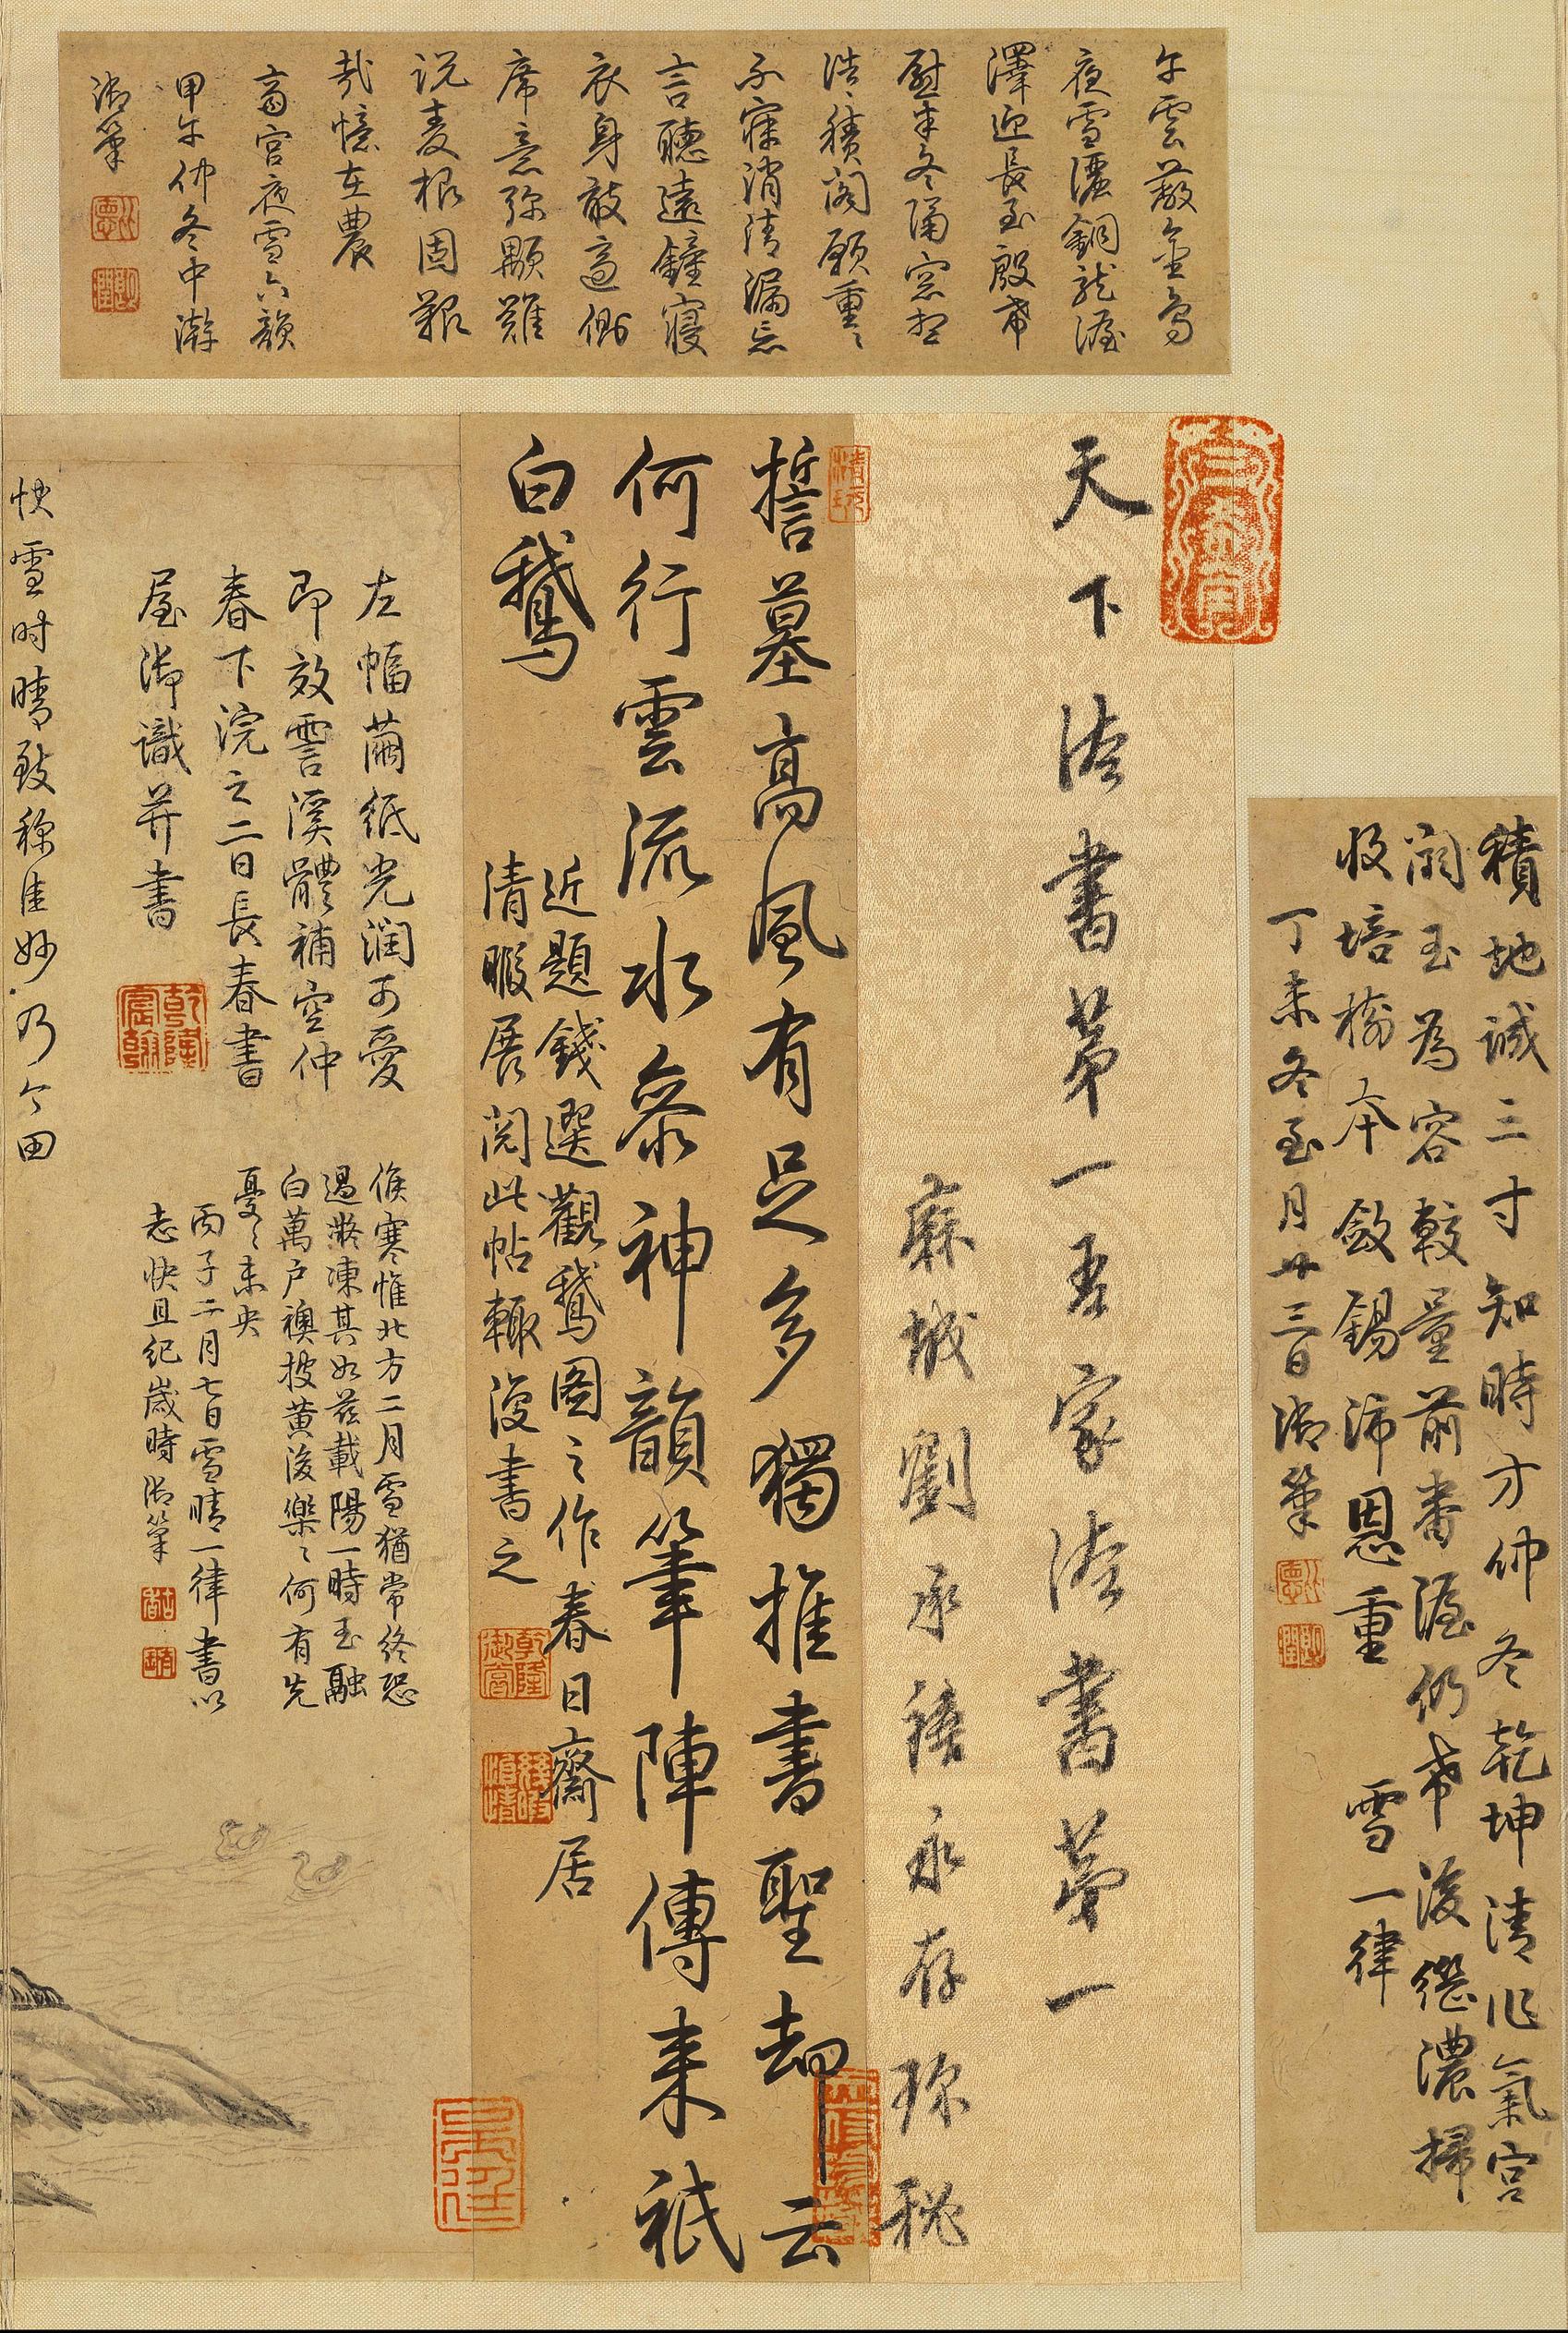 積地誠三寸知時方仲冬乾坤清作氣宮
闕玉為容較量前番渥仍希後繼濃掃
收培樹本斂錫沛恩重 雪一律
丁未冬至月廿三日御筆
午雲蔽金烏
夜雪灑銅龍渥
澤迎長至殷希
慰半冬隔窓想
浩〻積閣願重〻
不寐消清漏忘
言聽遠鐘寢
衣身敢適側
席意弥顒難
説麦根固艱
哉憶在農
齋宮夜雪六韻
甲午仲冬中澣
御筆
天下法書第一吾家法書第一
麻城劉承禧永存珎秘
誓墓高風有足多獨推書聖却云
何行雲流水參神韻筆陣傳来祇
白鵝
近題錢選觀鵝图之作春日齋居
清暇展閱此帖輙復書之
乾隆御賞
左幅蠒紙光潤可愛
即效雪溪體補空仲
春下浣之二日長春書
屋御識并書
乾隆宸翰
候寒惟北方二月雪猶常終恐
過嚴凍其如兹載陽一時玉融
白萬户襖披黄後樂〻何有先
憂〻未央
丙子二月七日雪晴一律書以
志快且紀歳時御筆
快雪时晴致称佳妙乃今田